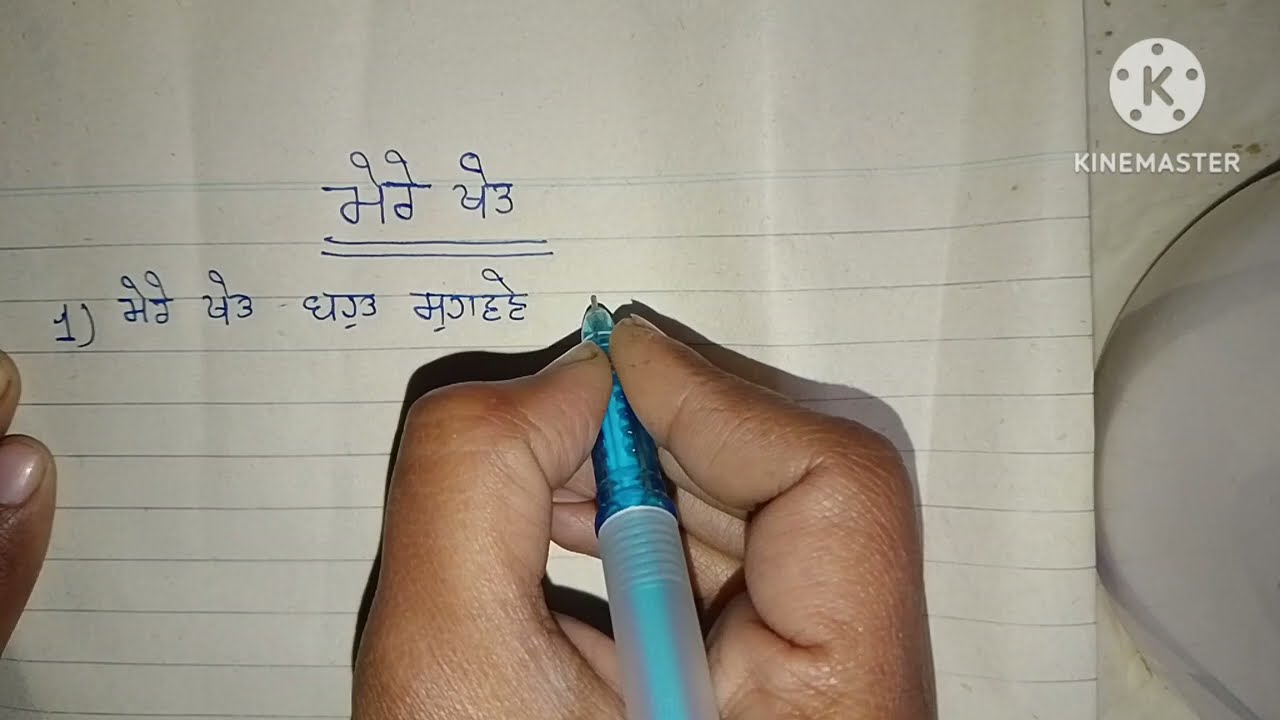 ਮੇਰੇ ਖੇਤ
1) ਮੇਰੇ ਖੇਤ ਬਹੁਤ
K
KINEMASTER